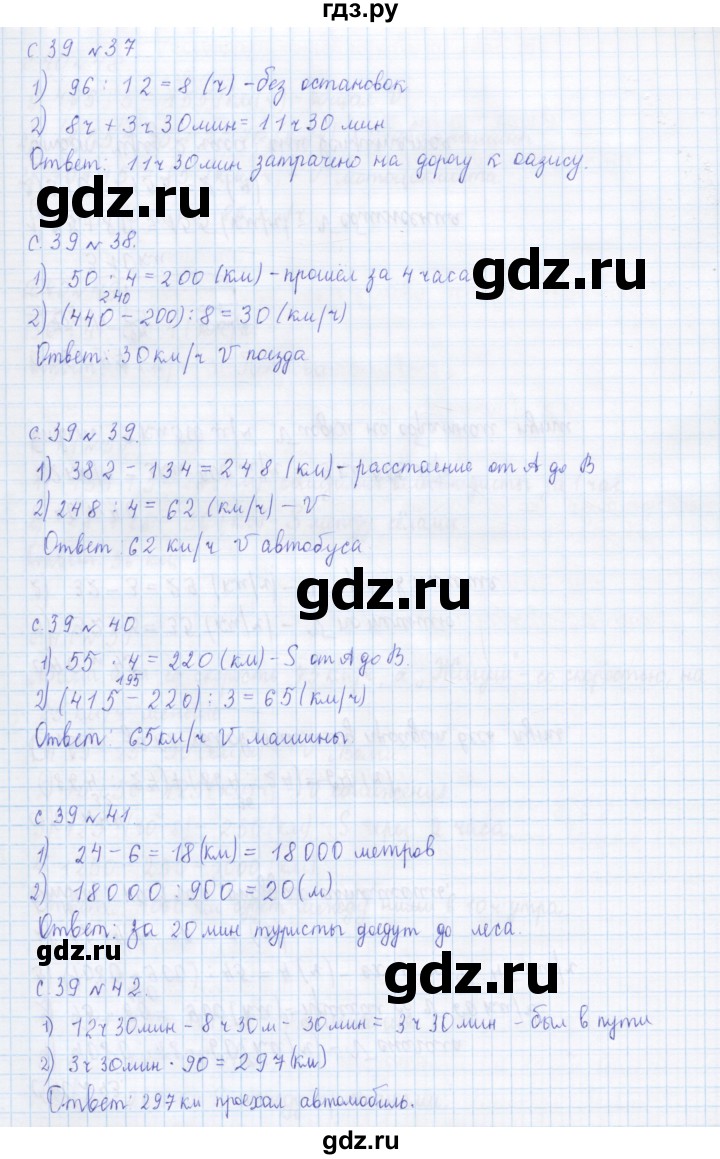 гдз.ру
с 39 № 37
1) 96 : 12 = 8 (ч) - без остановок
2) 8ч + 3ч 30мин = 11ч 30 мин
Ответ: 11ч 30мин затрачено на дорогу к оазису.
gdz.ru
с. 39 № 38.
1) 50 · 4 = 200 (км) - прошёл за 4 часа
gdz.ru
240
2) (440 - 200) : 8 = 30 (км/ч)
Ответ: 30 км/ч V поезда
с. 39 № 39.
1) 382 - 134 = 248 (км) - расстаение от А до В
2) 248 : 4 = 62 (км/ч) - V
Ответ 62 км/ч V автобуса
gdz.ru
с. 39 № 40
1) 55 · 4 = 220 (км) - S от А до В.
195
2) (415 - 220) : 3 = 65 (км/ч)
Ответ: 65км/ч V машины
gdz.ru
с 39 № 41
1) 24 - 6 = 18 (км) = 18 000 метров
2) 18000 : 900 = 20 (м)
Ответ: за 20 мин туристы доедут до леса.
gdz.ru
gdz.ru
с 39 № 42.
1) 12ч 30мин - 8ч 30м - 30мин = 3ч 30мин - был в пути
2) 3ч 30мин · 90 = 297 (км)
Ответ: 297 км проехал автомобиль.
gdz.ru